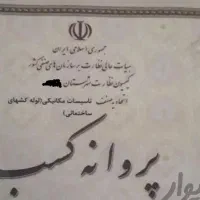 جمهوری اسلامی ایران
هیات عالی نظارت بر سازمان های صنفی کشور
کمیسیون نظارت شهرستان
اتحادیه صنف تاسیسات مکانیکی(لوله کشهای ساختمانی)
پروانه کسب